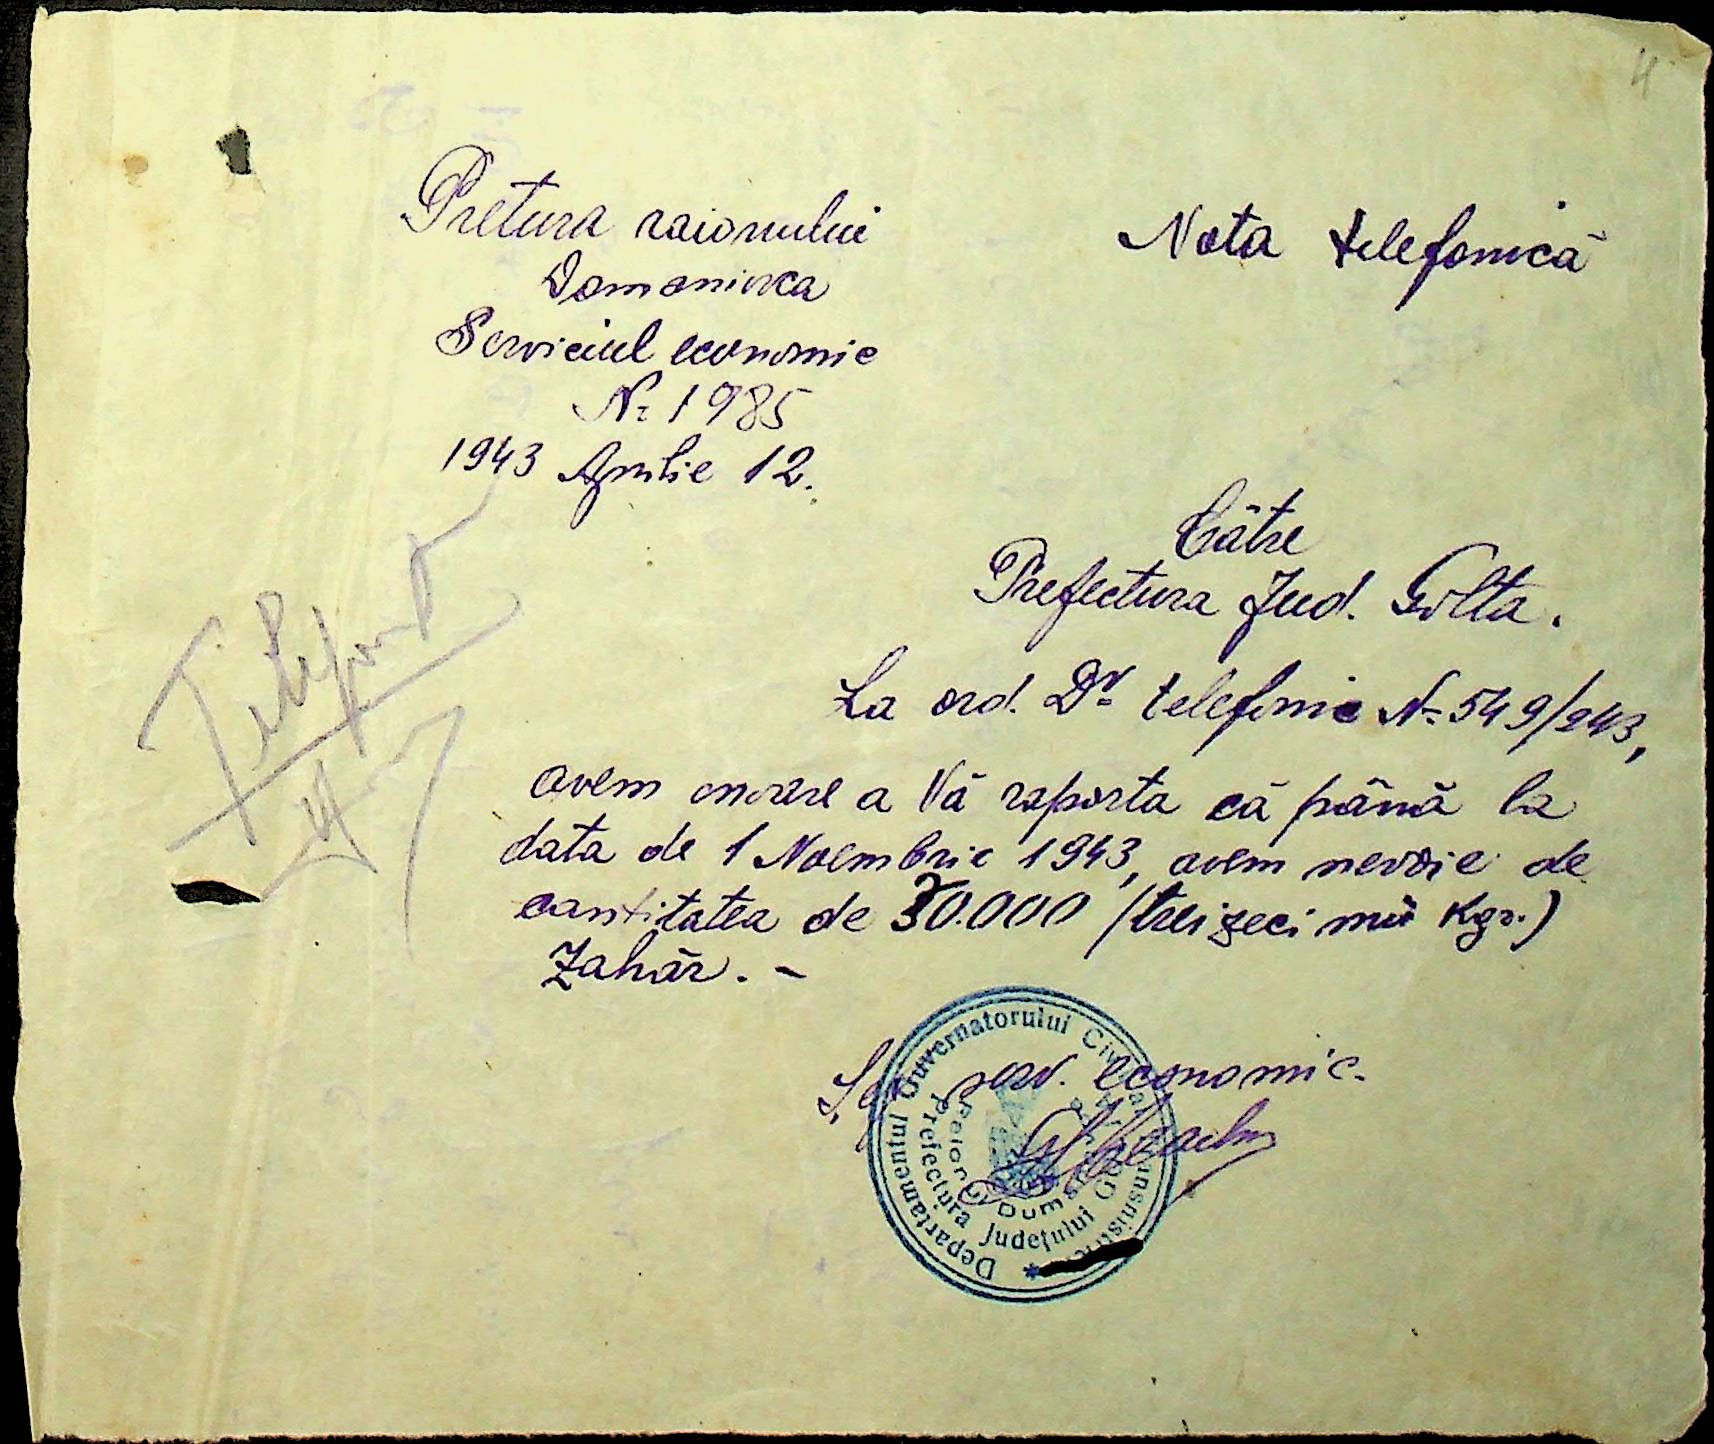 4
Pretura raionului
Domaniovca
Serviciul economic
Nr 1985
1943 Aprilie 12.
Nota telefonică
Către
Prefectura Jud. Golta.
La ord. Dv telefonic Nr. 549/943,
avem onoare a Vă raporta că până la
data de 1 Noembrie 1943, avem nevoie de
cantitatea de 30.000 (treizeci mii Kgr.)
Zahăr. -
Telefonat
Șef serv. economic.
Departamentul Guvernatorului Civil
Prefectura Județului
Raionul